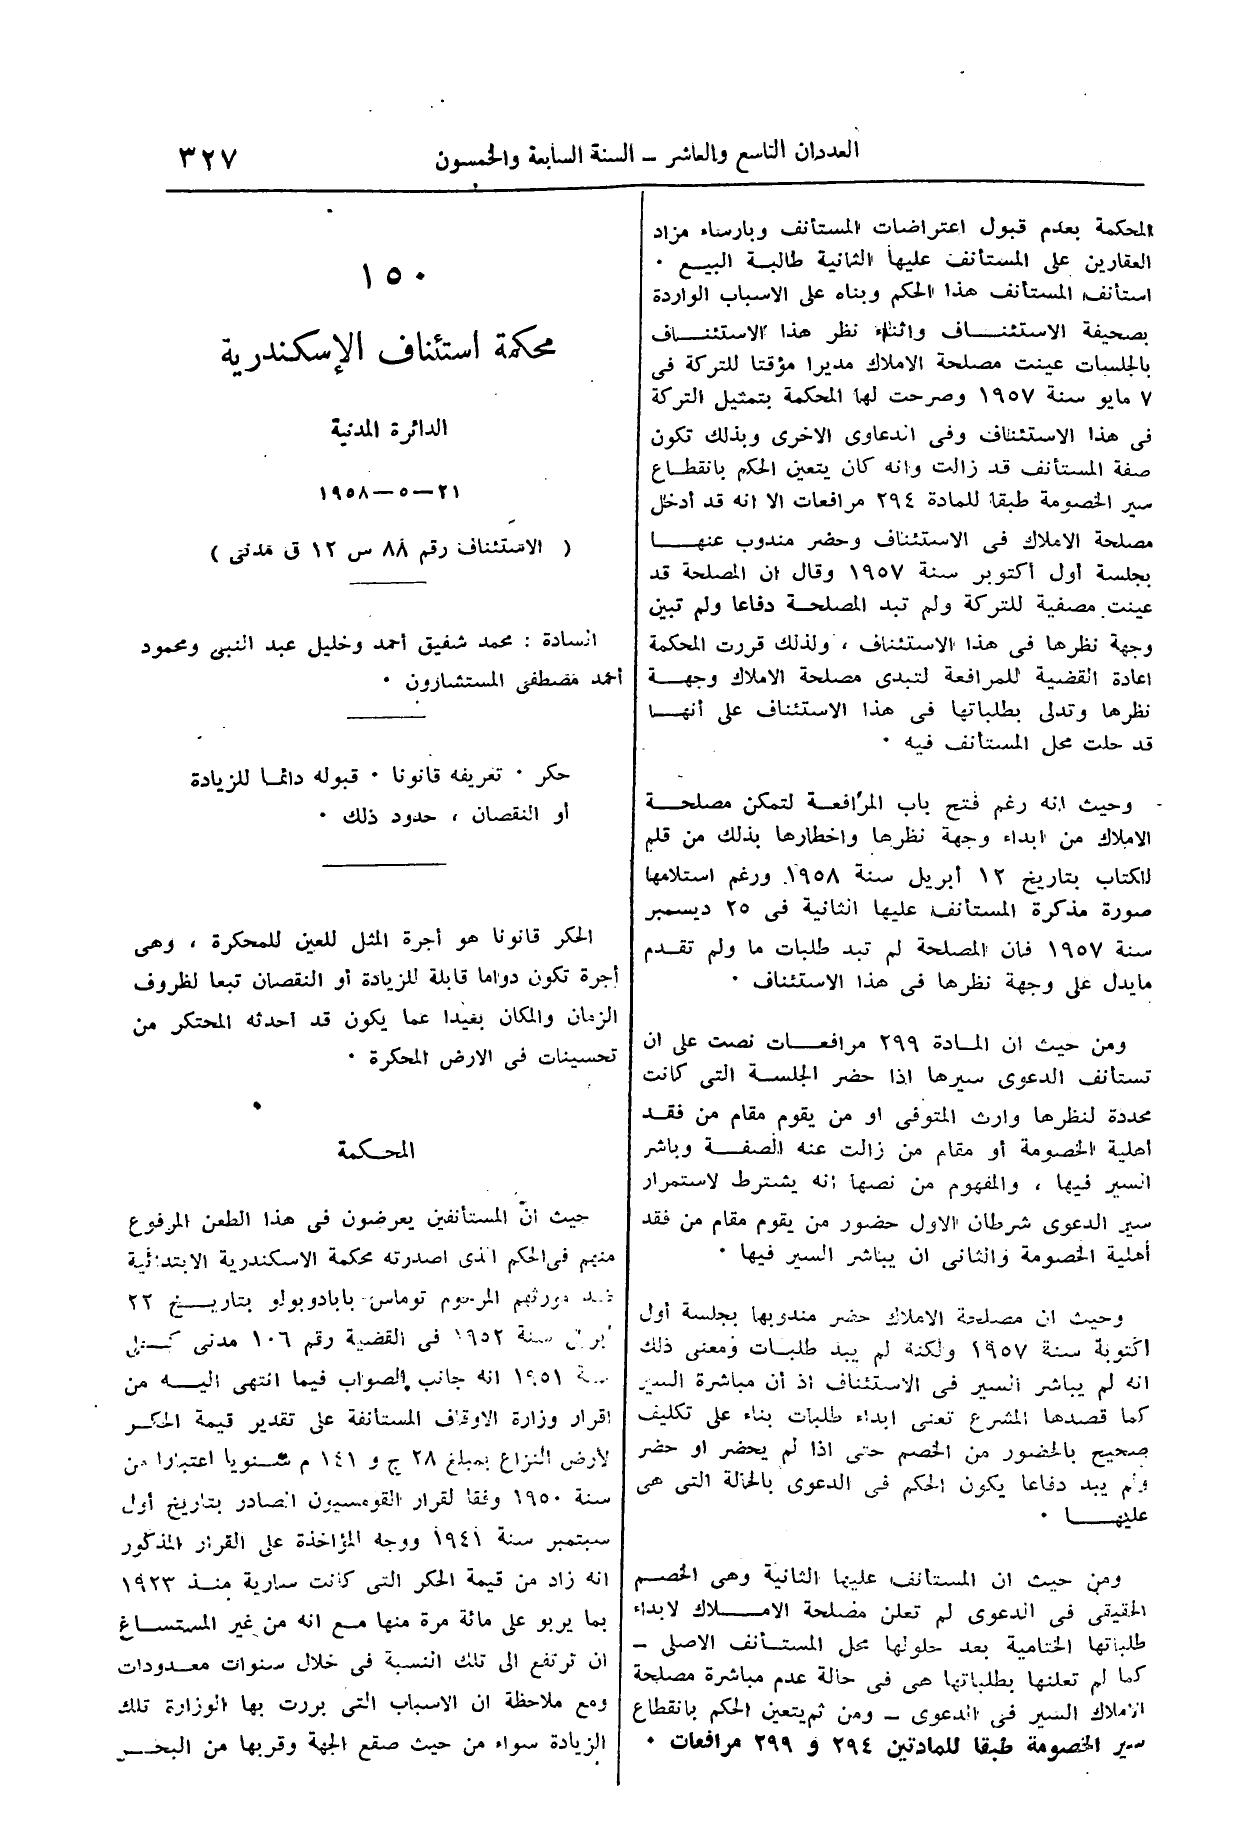 العددان التاسع والعاشر – السنة السابعة والخمسون
٣٢٧
المحكمة بعدم قبول اعتراضات المستأنف وبارساء مزاد
العقارين على المستأنف عليها الثانية طالبة البيع ٠
استأنف المستأنف هذا الحكم وبناه على الاسباب الواردة
بصحيفة الاستئنــاف واثناء نظر هذا الاستئنــاف
بالجلسات عينت مصلحة الاملاك مديرا مؤقتا للتركة فى
٧ مايو سنة ١٩٥٧ وصرحت لها المحكمة بتمثيل التركة
فى هذا الاستئناف وفى الدعاوى الاخرى وبذلك تكون
صفة المستأنف قد زالت وانه كان يتعين الحكم بانقطـاع
سير الخصومة طبقا للمادة ٢٩٤ مرافعات الا انه قد أدخل
مصلحة الاملاك فى الاستئناف وحضر مندوب عنهــا
بجلسة أول أكتوبر سنة ١٩٥٧ وقال ان المصلحة قد
عينت مصفية للتركة ولم تبد المصلحـة دفاعا ولم تبين
وجهة نظرها فى هذا الاستئناف ، ولذلك قررت المحكمة
اعادة القضية للمرافعة لتبدى مصلحة الاملاك وجهــة
نظرها وتدلى بطلباتها فى هذا الاستئناف على أنهــا
قد حلت محل المستأنف فيه ٠
وحيث انه رغم فتح باب المرافعـة لتمكن مصلحــة
الاملاك من ابداء وجهة نظرها واخطارها بذلك من قلم
الكتاب بتاريخ ١٢ أبريل سنة ١٩٥٨ ورغم استلامها
صورة مذكرة المستأنف عليها الثانية فى ٢٥ ديسمبر
سنة ١٩٥٧ فان المصلحة لم تبد طلبات ما ولم تقـدم
مايدل على وجهة نظرها فى هذا الاستئناف ٠
ومن حيث ان المـادة ٢٩٩ مرافعــات نصت على ان
تستأنف الدعوى سيرها اذا حضر الجلسـة التى كانت
محددة لنظرها وارث المتوفى او من يقوم مقام من فقـد
أهلية الخصومة أو مقام من زالت عنه الصفــة وباشر
السير فيها ، والمفهوم من نصها انه يشترط لاستمرار
سير الدعوى شرطان الاول حضور من يقوم مقام من فقد
أهلية الخصومة والثانى ان يباشر السير فيها ٠
وحيث ان مصلحة الاملاك حضر مندوبها بجلسة أول
اكتوبة سنة ١٩٥٧ ولكنة لم يبد طلبـات ومعنى ذلك
انه لم يباشر السير فى الاستئناف اذ أن مباشرة السير
كما قصدها المشرع تعنى ابداء طلبات بناء على تكليف
صحيح بالحضور من الخصم حتى اذا لم يحضر او حضر
ولم يبد دفاعا يكون الحكم فى الدعوى بالحالة التى هى
عليهــا ٠
ومن حيث ان المستأنف عليها الثانية وهى الخصـم
الحقيقى فى الدعوى لم تعلن مصلحة الامــلاك لابداء
طلباتها الختامية بعد حلولها محل المستـأنف الاصلى –
كما لم تعلنها بطلباتها هى فى حالة عدم مباشرة مصلحة
الاملاك السير فى الدعوى – ومن ثم يتعين الحكم بانقطاع
سير الخصومة طبقا للمادتين ٢٩٤ و ٢٩٩ مرافعات ٠
١٥٠
محكمة استئناف الإسكندرية
الدائرة المدنية
٢١ – ٥ – ١٩٥٨
( الاستئناف رقم ٨٨ س ١٢ ق مدنى )
السادة : محمد شفيق أحمد وخليل عبد النبى ومحمود
أحمد مصطفى المستشارون ٠
حكر ٠ تعريفه قانونا ٠ قبوله دائمـا للزيادة
أو النقصان ، حدود ذلك ٠
الحكر قانونا هو أجرة المثل للعين للمحكرة ، وهى
أجرة تكون دواما قابلة للزيادة أو النقصان تبعا لظروف
الزمان والمكان بعيدا عما يكون قد أحدثه المحتكر من
تحسينات فى الارض المحكرة ٠
المحـكمة
حيث ان المستأنفين يعرضون فى هذا الطعن المرفوع
منهم فى الحكم الذى اصدرته محكمة الاسكندرية الابتدائية
ضد مورثهم المرحوم توماس بابادوبولو بتاريــخ ٢٢
أبريل سنة ١٩٥٢ فى القضية رقم ١٠٦ مدنى كـلى
سنة ١٩٥١ انه جانب الصواب فيما انتهى اليـه من
اقرار وزارة الاوقاف المستأنفة على تقدير قيمة الحكـر
لأرض النزاع بمبلغ ٢٨ ج و ١٤١ م سنـويا اعتبارا من
سنة ١٩٥٠ وفقا لقرار القومسيون الصادر بتاريخ أول
سبتمبر سنة ١٩٤١ ووجه المؤاخذة على القرار المذكور
انه زاد من قيمة الحكر التى كانت سارية منـذ ١٩٢٣
بما يربو على مائة مرة منها مـع انه من غير المستسـاغ
ان ترتفع الى تلك النسبة فى خلال سنوات معـدودات
ومع ملاحظة ان الاسباب التى بررت بها الوزارة تلك
الزيادة سواء من حيث صقع الجهة وقربها من البحــر